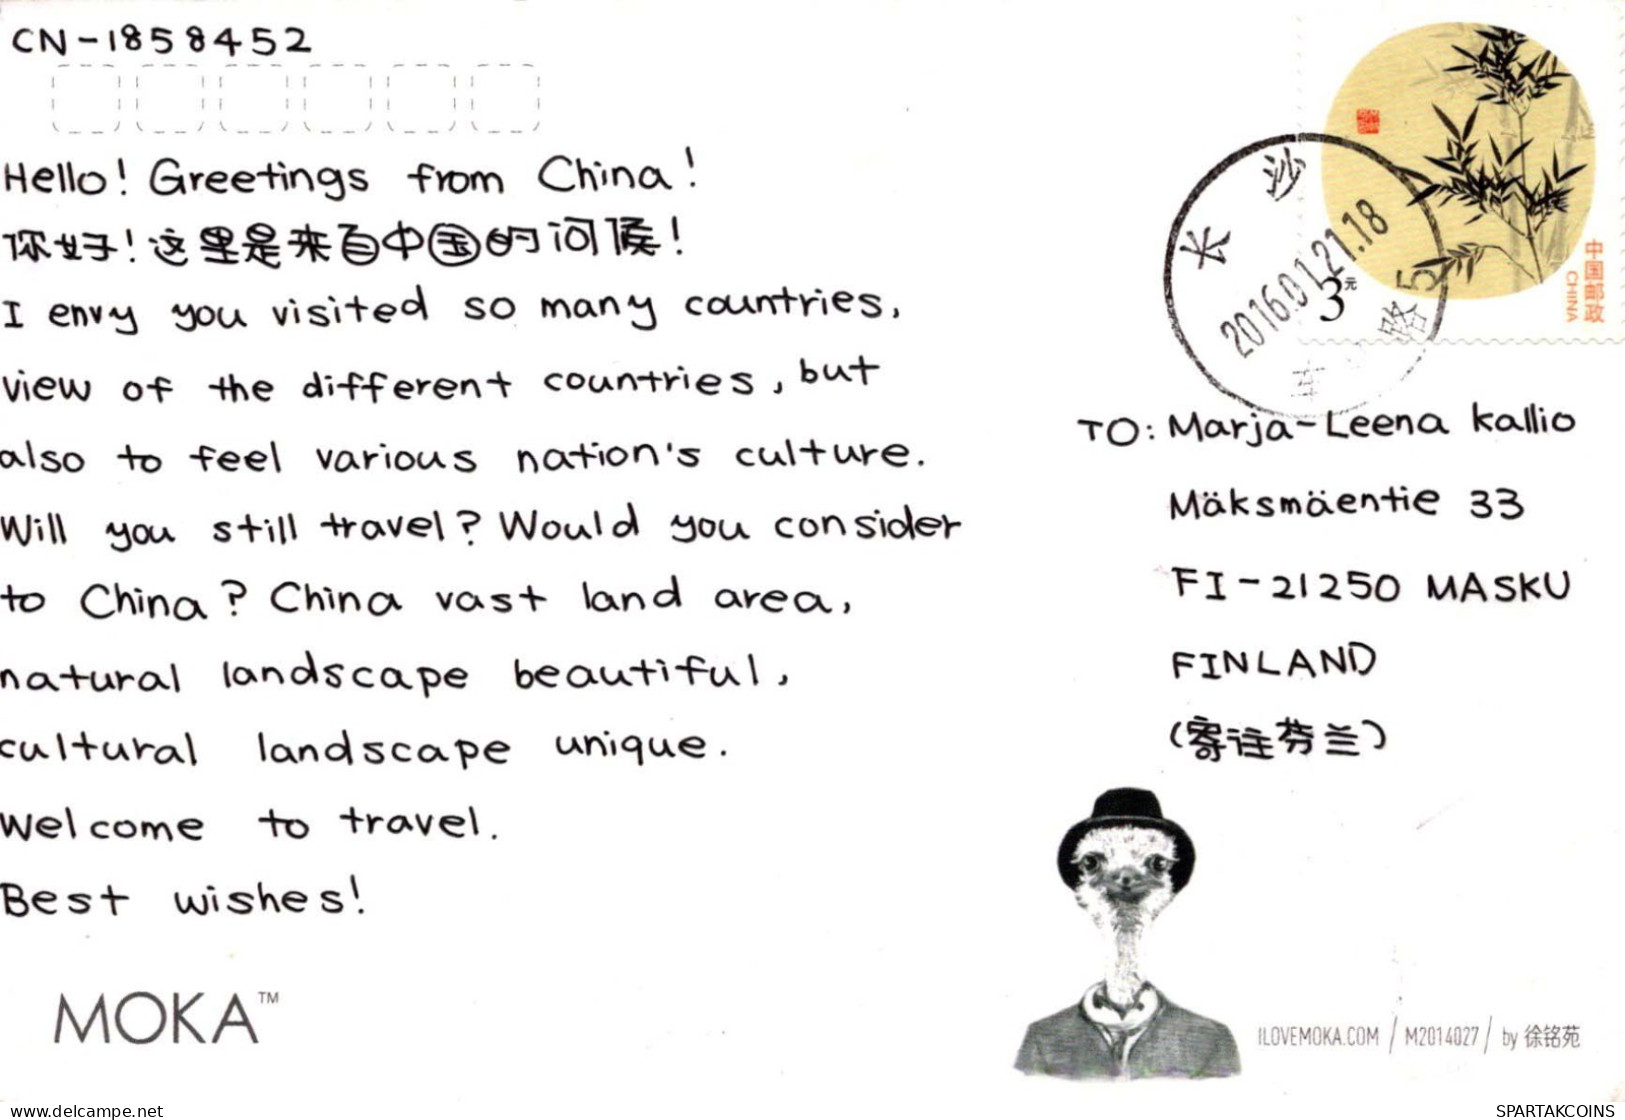 CN-1858452
Hello! Greetings from China!
你好!这里是来自中国的问候!
I envy you visited so many countries,
view of the different countries, but
also to feel various nation's culture.
Will you still travel? Would you consider
to China? China vast land area,
natural landscape beautiful,
cultural landscape unique.
Welcome to travel.
Best wishes!
MOKA™
中国邮政
CHINA
3元
长沙
2016.01.21.18
路5
TO: Marja-Leena Kallio
Mäksmäentie 33
FI-21250 MASKU
FINLAND
(寄往芬兰)
ILOVEMOKA.COM / M2014027 / by 徐铭苑
www.delcampe.net
SPARTAKCOINS